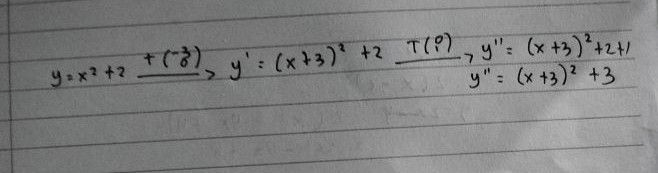 y = x² + 2 T(-3 0) → y' = (x+3)² + 2 T(0 1) → y'' = (x+3)² + 2 + 1
y'' = (x+3)² + 3